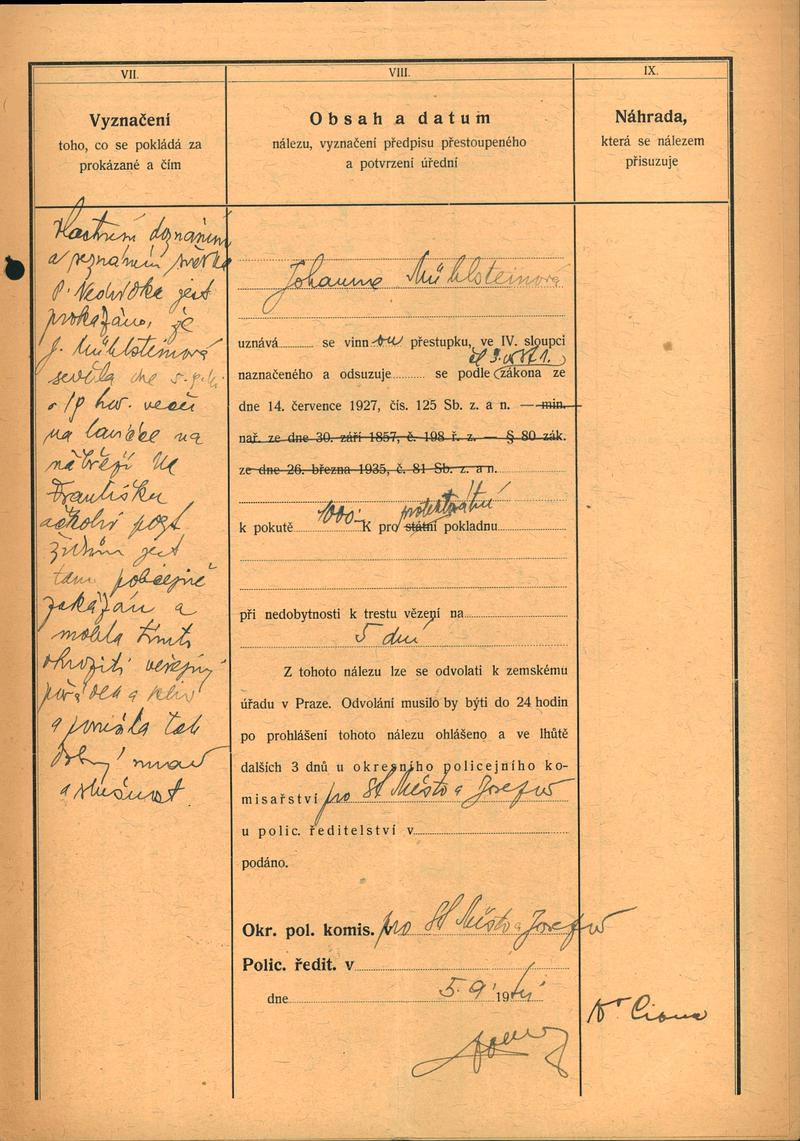 VII.
Vyznačení
toho, co se pokládá za
prokázané a čím
Vlastním doznáním
a seznáním svědka
P. jest
prokázáno, že
J. Mühlsteinová
seděla dne 5.9.
v 19 hod. večer
na lavičce na
nábřeží Na
Františku
ačkoliv pozt
židům jest
tam policejně
zakázán a
mohla tímto
ohroziti veřejný
pořádek a klid
a porušila tak
dobrý mrav
a slušnost.
VIII.
Obsah a datum
nálezu, vyznačení předpisu přestoupeného
a potvrzení úřední
Johanna Mühlsteinová
uznává se vinnou přestupku, ve IV. sloupci
čl 3. odst 1.
naznačeného a odsuzuje se podle zákona ze
dne 14. července 1927, čís. 125 Sb. z. a n. — min.
nař. ze dne 30. září 1857, č. 198 ř. z. — § 80 zák.
ze dne 26. března 1935, č. 81 Sb. z. a n.
protektorátní
k pokutě 1000.- K pro státní pokladnu
při nedobytnosti k trestu vězení na
5 dní
Z tohoto nálezu lze se odvolati k zemskému
úřadu v Praze. Odvolání musilo by býti do 24 hodin
po prohlášení tohoto nálezu ohlášeno a ve lhůtě
dalších 3 dnů u okresního policejního ko-
misařství pro St Město a Josefov
u polic. ředitelství v
podáno.
Okr. pol. komis. v pro St Město a Josefov
Polic. ředit. v
dne 5. 9. 1941
IX.
Náhrada,
která se nálezem
přisuzuje
Dr